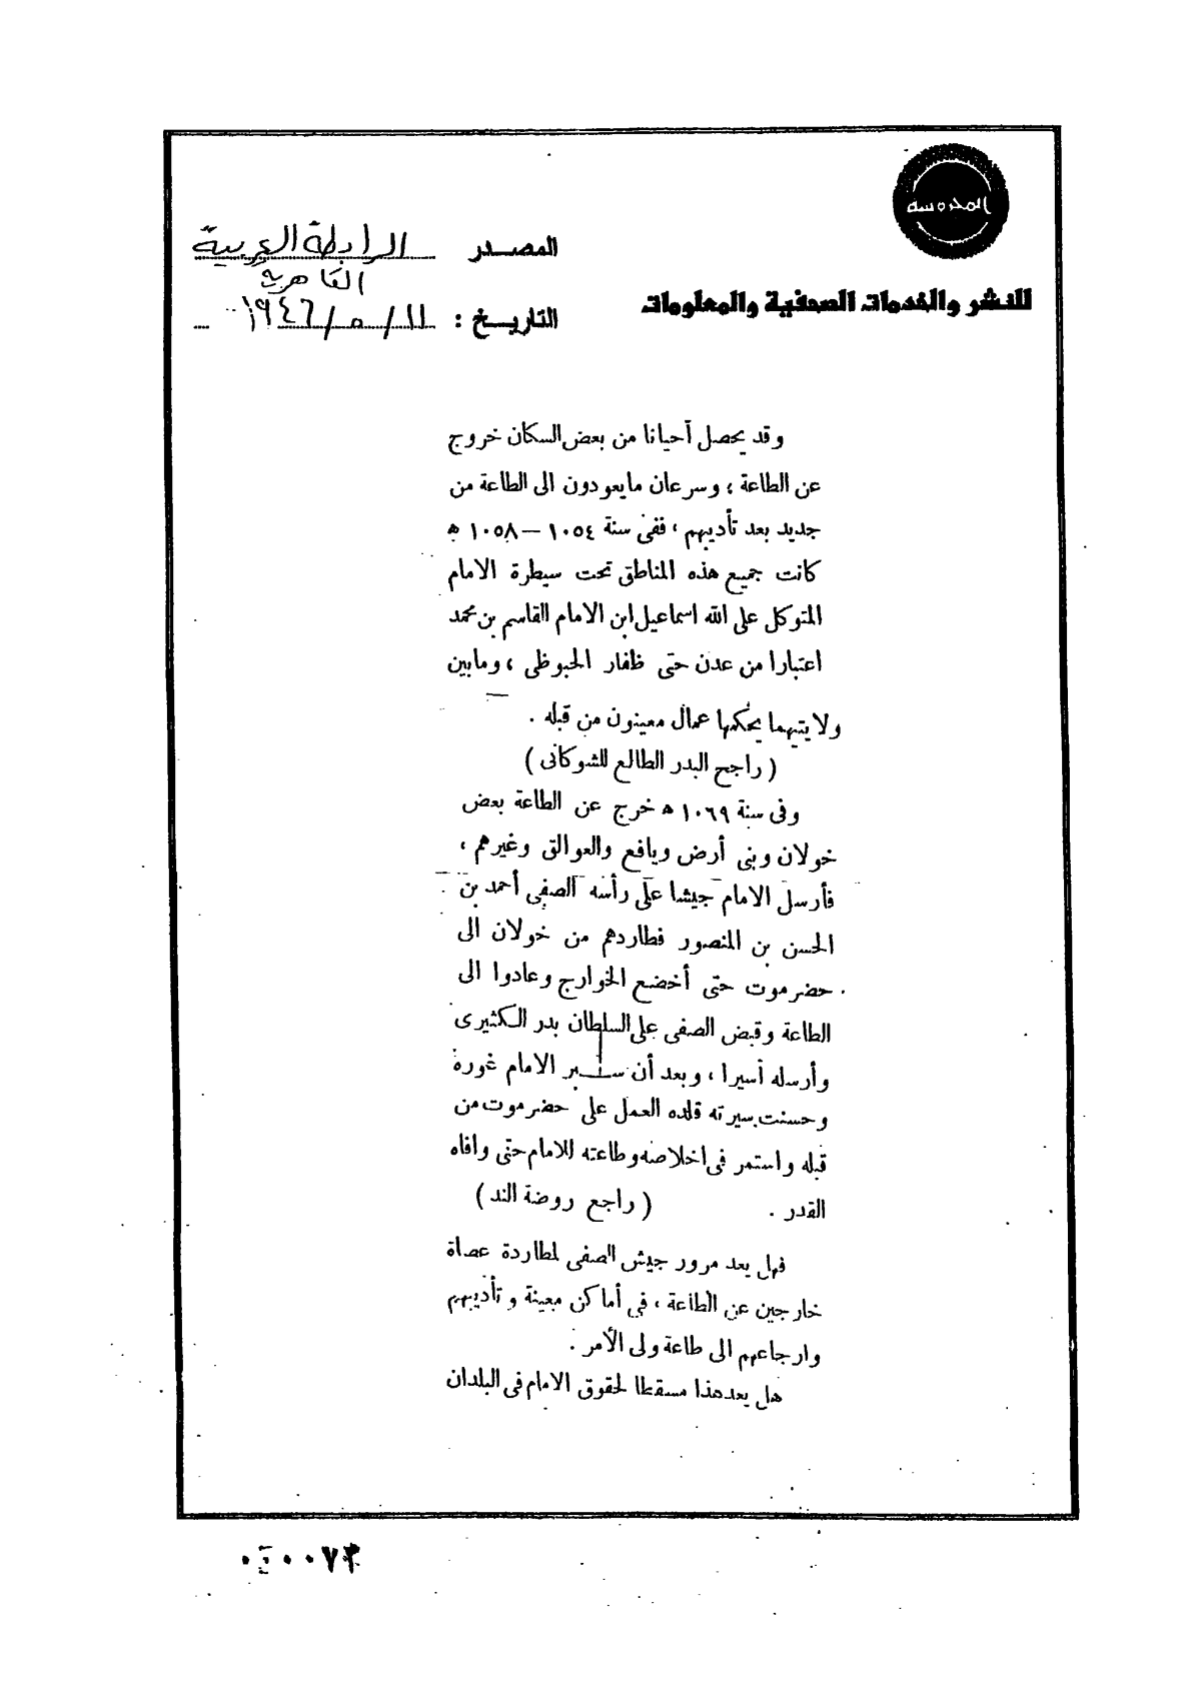 المحروسة
المصدر الرابطة العربية
القاهرية
للنشر والخدمات الصحفية والمعلومات
التاريخ : ١١/٥/١٩٤٦
وقد يحصل أحيانا من بعض السكان خروج
عن الطاعة ؛ وسرعان مايعودون الى الطاعة من
جديد بعد تأديبهم ، ففى سنة ١٠٥٤ — ١٠٥٨ ه
كانت جميع هذه المناطق تحت سيطرة الامام
المتوكل على الله اسماعيل ابن الامام القاسم بن محمد
اعتبارا من عدن حتى ظفار الحبوظى ، ومابين
ولايتيهما يحكمها عمال معينون من قبله .
( راجح البدر الطالع للشوكانى )
وفى سنة ١٠٦٩ ه خرج عن الطاعة بعض
خولان وبنى أرض ويافع والعوالق وغيرهم ،
فأرسل الامام جيشا على رأسه الصفى أحمد بن
الحسن بن المنصور فطاردهم من خولان الى
حضرموت حتى أخضع الخوارج وعادوا الى
الطاعة وقبض الصفى على السلطان بدر الكثيرى
وأرسله أسيرا ، وبعد أن سبر الامام غوره
وحسنت سيرته قلده العمل على حضرموت من
قبله واستمر فى اخلاصه وطاعته للامام حتى وافاه
القدر . ( راجع روضة الند )
فهل يعد مرور جيش الصفى لمطاردة عصاة
خارجين عن الطاعة ، فى أماكن معينة وتأديبهم
وارجاعهم الى طاعة ولى الأمر .
هل يعد هذا مسقطا لحقوق الامام فى البلدان